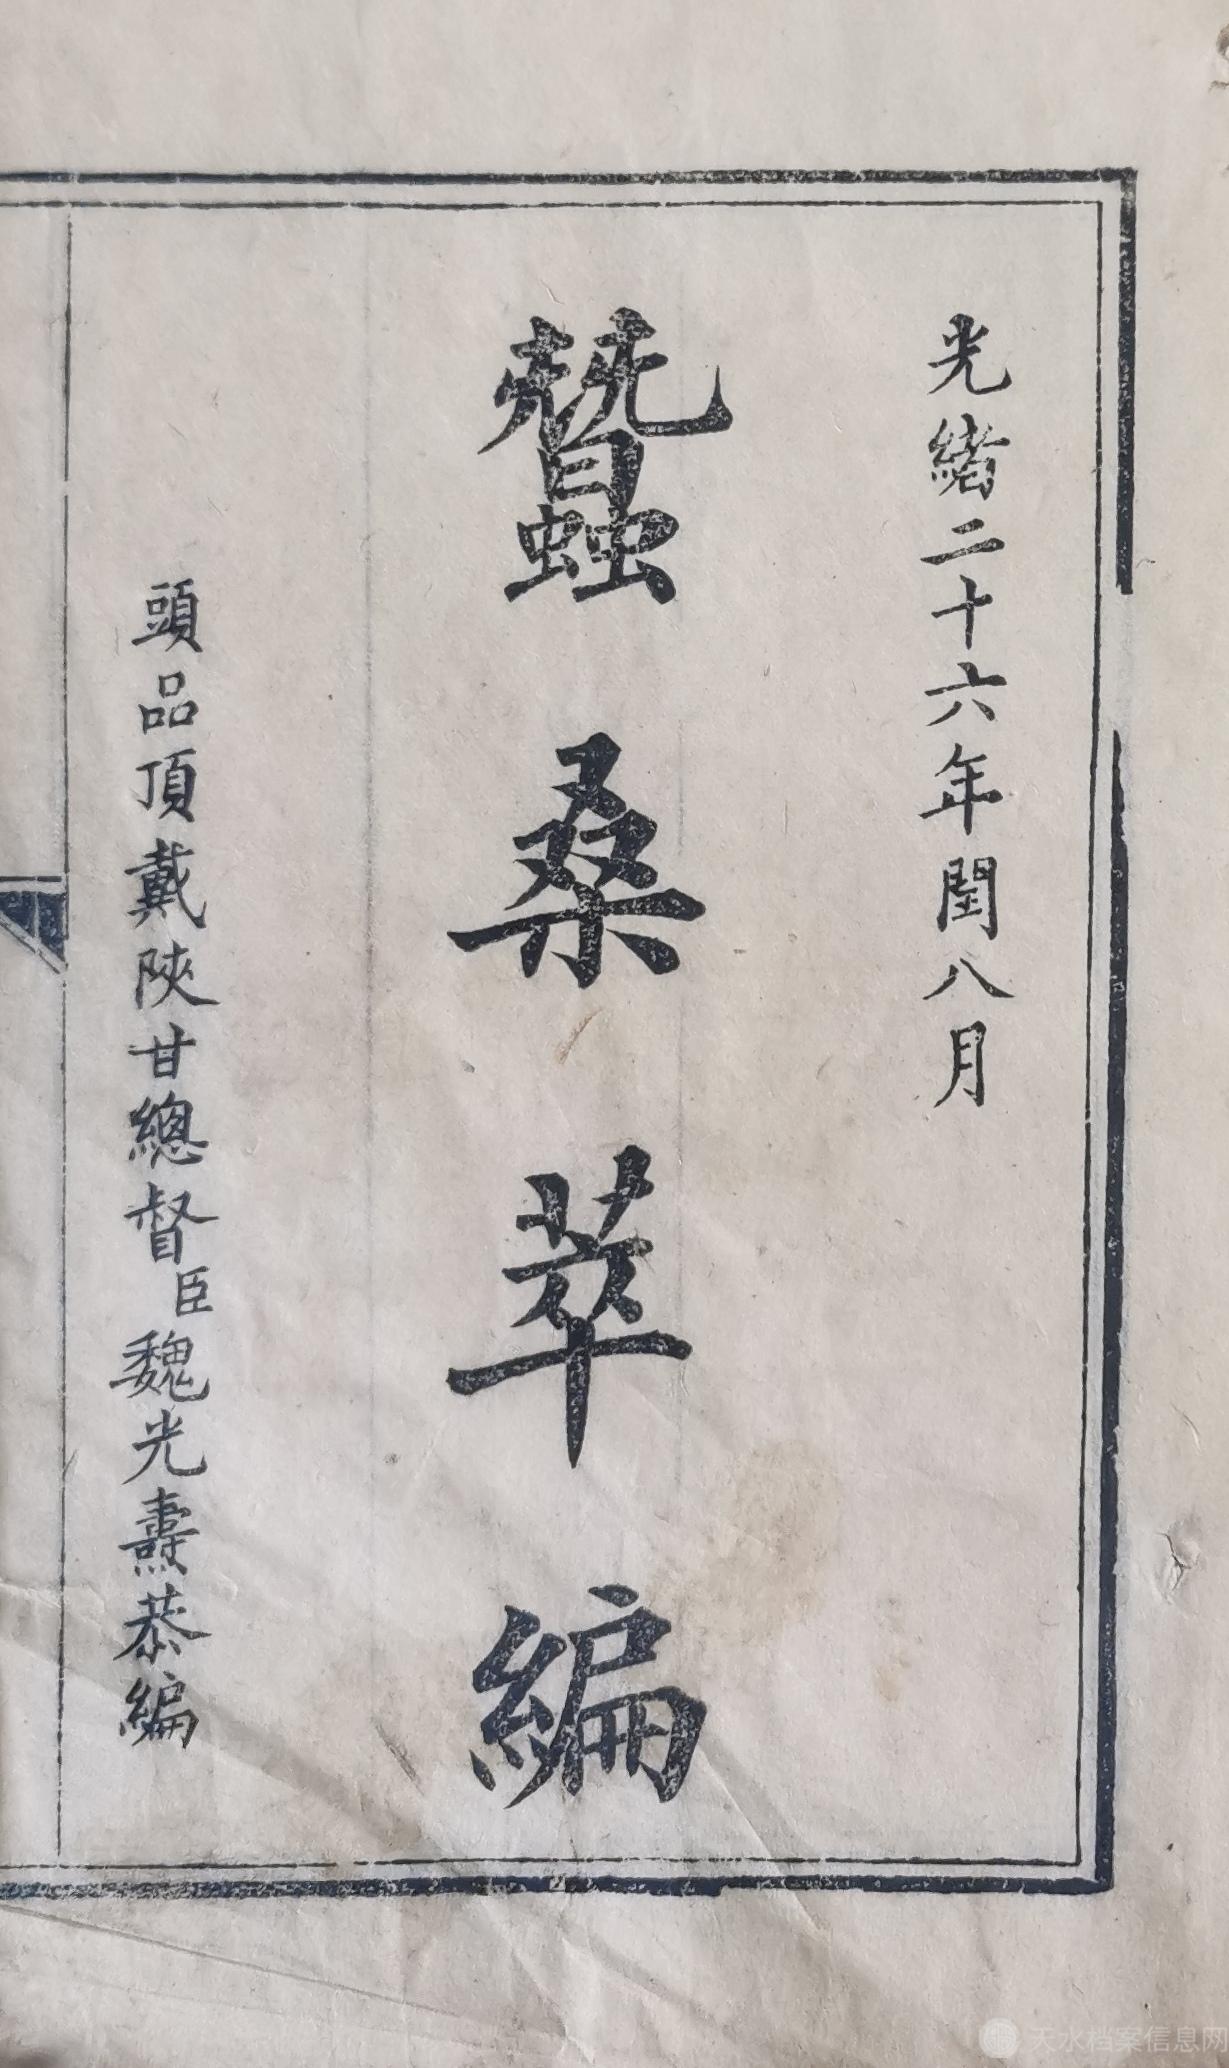 光緒二十六年閏八月
蠶桑萃編
頭品頂戴陝甘總督臣魏光燾恭編
天水档案信息网